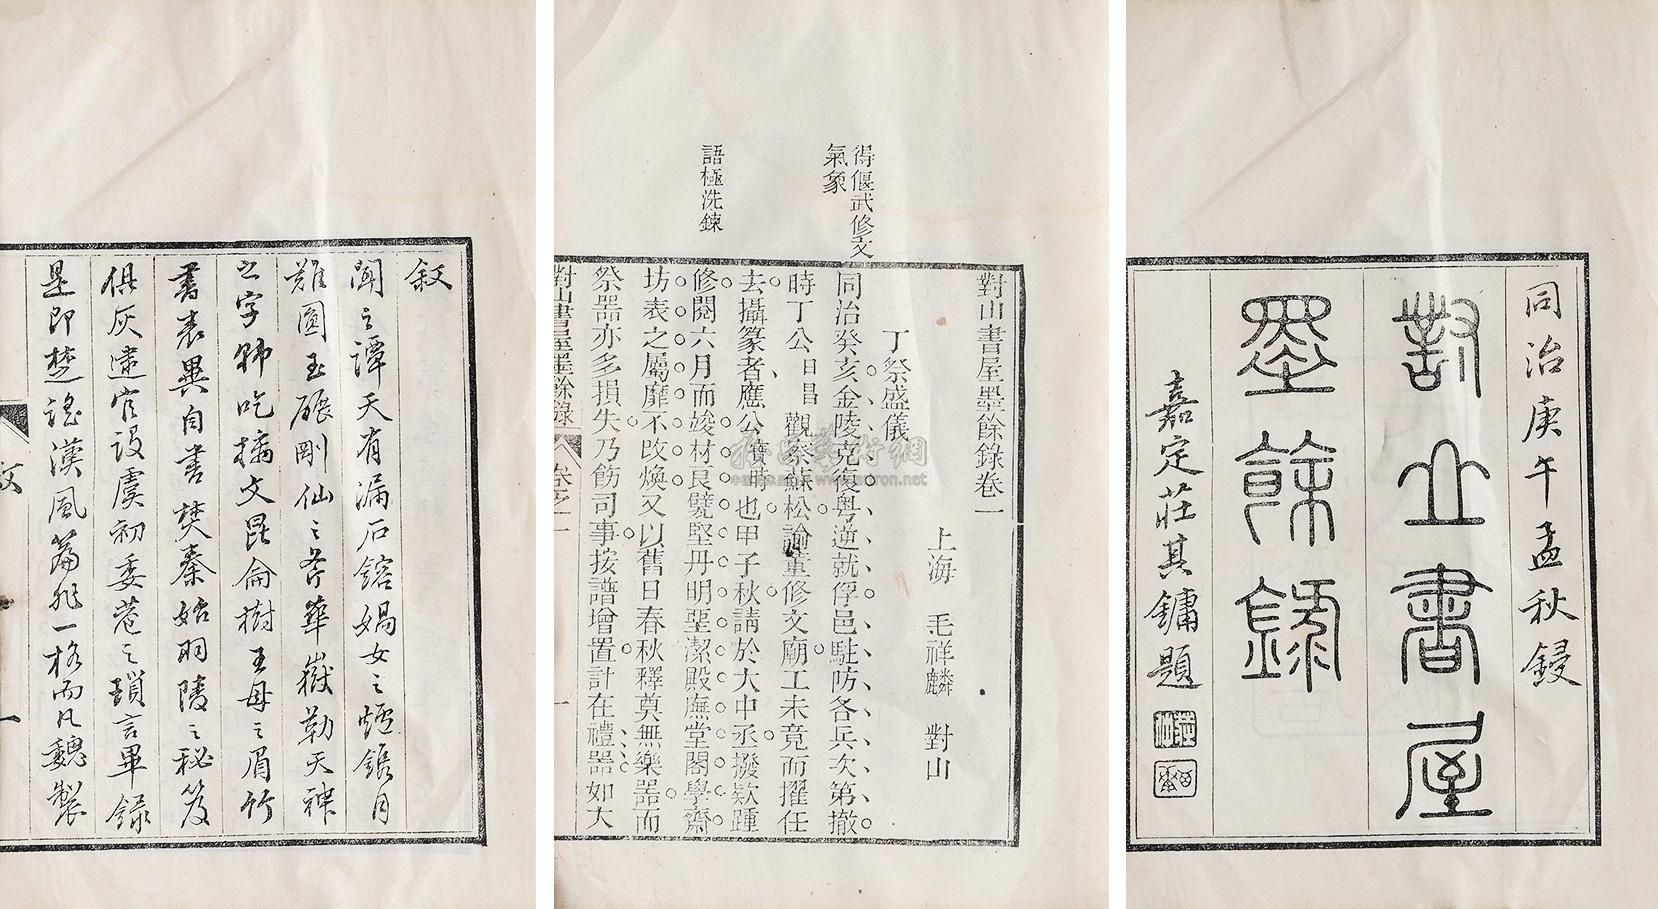 同治庚午孟秋鋟
對山書屋
墨餘錄
嘉定莊其鏞題
得偃武修文
氣象
語極洗鍊
對山書屋墨餘錄卷一
上海 毛祥麟 對山
丁祭盛儀
同治癸亥金陵克復粵逆就俘邑駐防各兵次第撤
時丁公日昌觀察蘇松諭董修文廟工未竟而擢任
去攝篆者應公寶時也甲子秋請於大中丞撥款踵
修閱六月而竣材良甓堅丹明堊潔殿廡堂閣學齋
坊表之屬靡不改煥又以舊日春秋釋奠無樂器而
祭器亦多損失乃飭司事按譜增置計在禮器如大
對山書屋墨餘錄 卷之一 一
敘
聞之譚天有漏石鎔媧女之爐鐫月
難圓玉碾剛仙之斧華嶽勒天神
之字 吃 文昆侖樹王母之眉竹
書表異自書 秦始羽陵之秘笈
俱灰建官設虞初委巷之瑣言畢錄
是即楚謠漢風篇非一格而凡魏製
敘 一